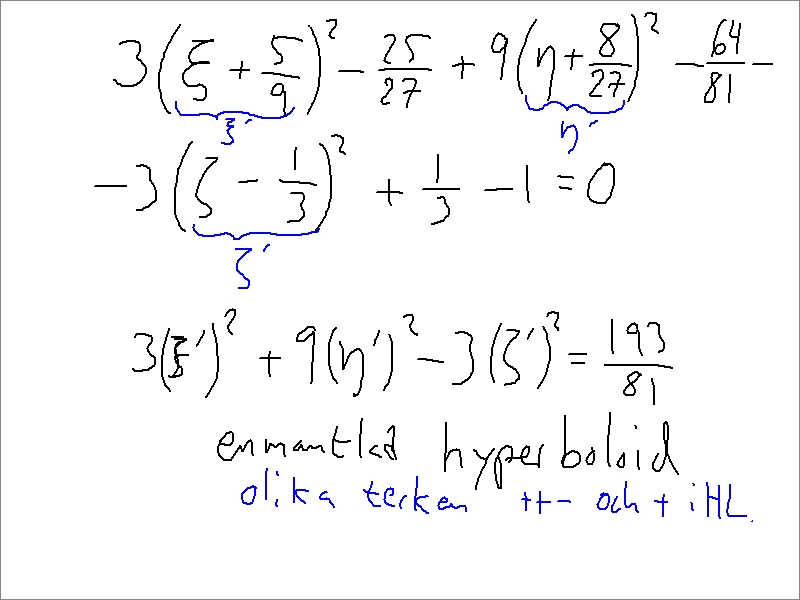 3(ξ + 5/9)² − 25/27 + 9(η + 8/27)² − 64/81 −
ξ′ η′
−3(ζ − 1/3)² + 1/3 − 1 = 0
ζ′
3(ξ′)² + 9(η′)² − 3(ζ′)² = 193/81
enmantlad hyperboloid
olika tecken ++− och + i HL.